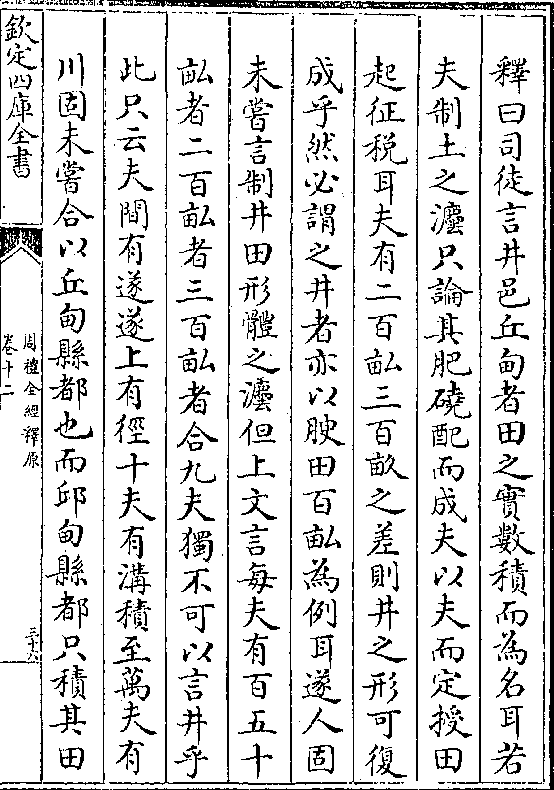 釋曰司徒言井邑丘甸者田之實數積而為名耳若
夫制土之灋只論其肥磽配而成夫以夫而定授田
起征税耳夫有二百畆三百畝之差則井之形可復
成乎然必謂之井者亦以腴田百畆為例耳遂人固
未嘗言制井田形體之灋但上文言每夫有百五十
畆者二百畆者三百畆者合九夫獨不可以言井乎
此只云夫間有遂遂上有徑十夫有溝積至萬夫有
川固未嘗合以丘甸縣都也而邱甸縣都只積其田
欽定四庫全書
周禮全經釋原
卷十二
三十六